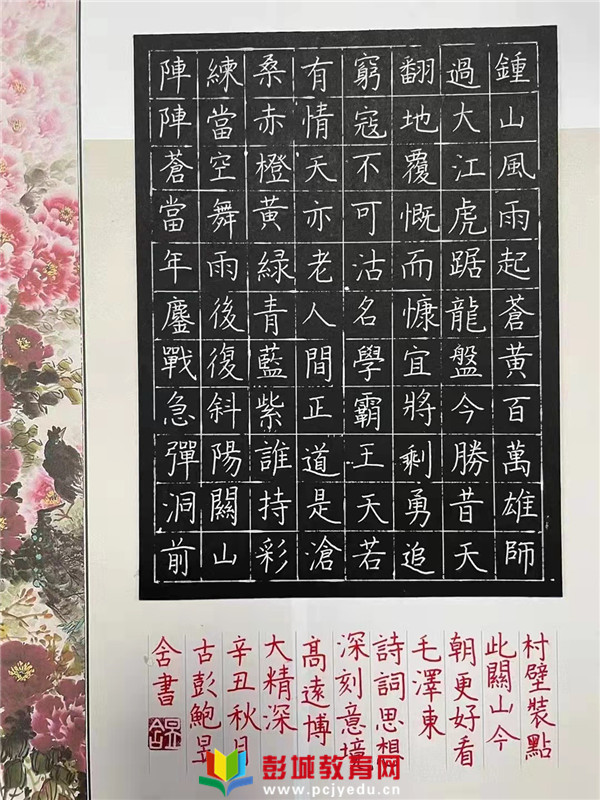 鍾山風雨起蒼黃百萬雄師
過大江虎踞龍盤今勝昔天
翻地覆慨而慷宜將剩勇追
窮寇不可沽名學霸王天若
有情天亦老人間正道是滄
桑赤橙黃緑青藍紫誰持彩
練當空舞雨後復斜陽關山
陣陣蒼當年鏖戰急彈洞前
村壁裝點
此關山今
朝更好看
毛澤東
詩詞思想
深刻意境
髙遠博
大精深
辛丑秋月
古彭鮑
舍書
彭城教育网
www.pcjyedu.cn